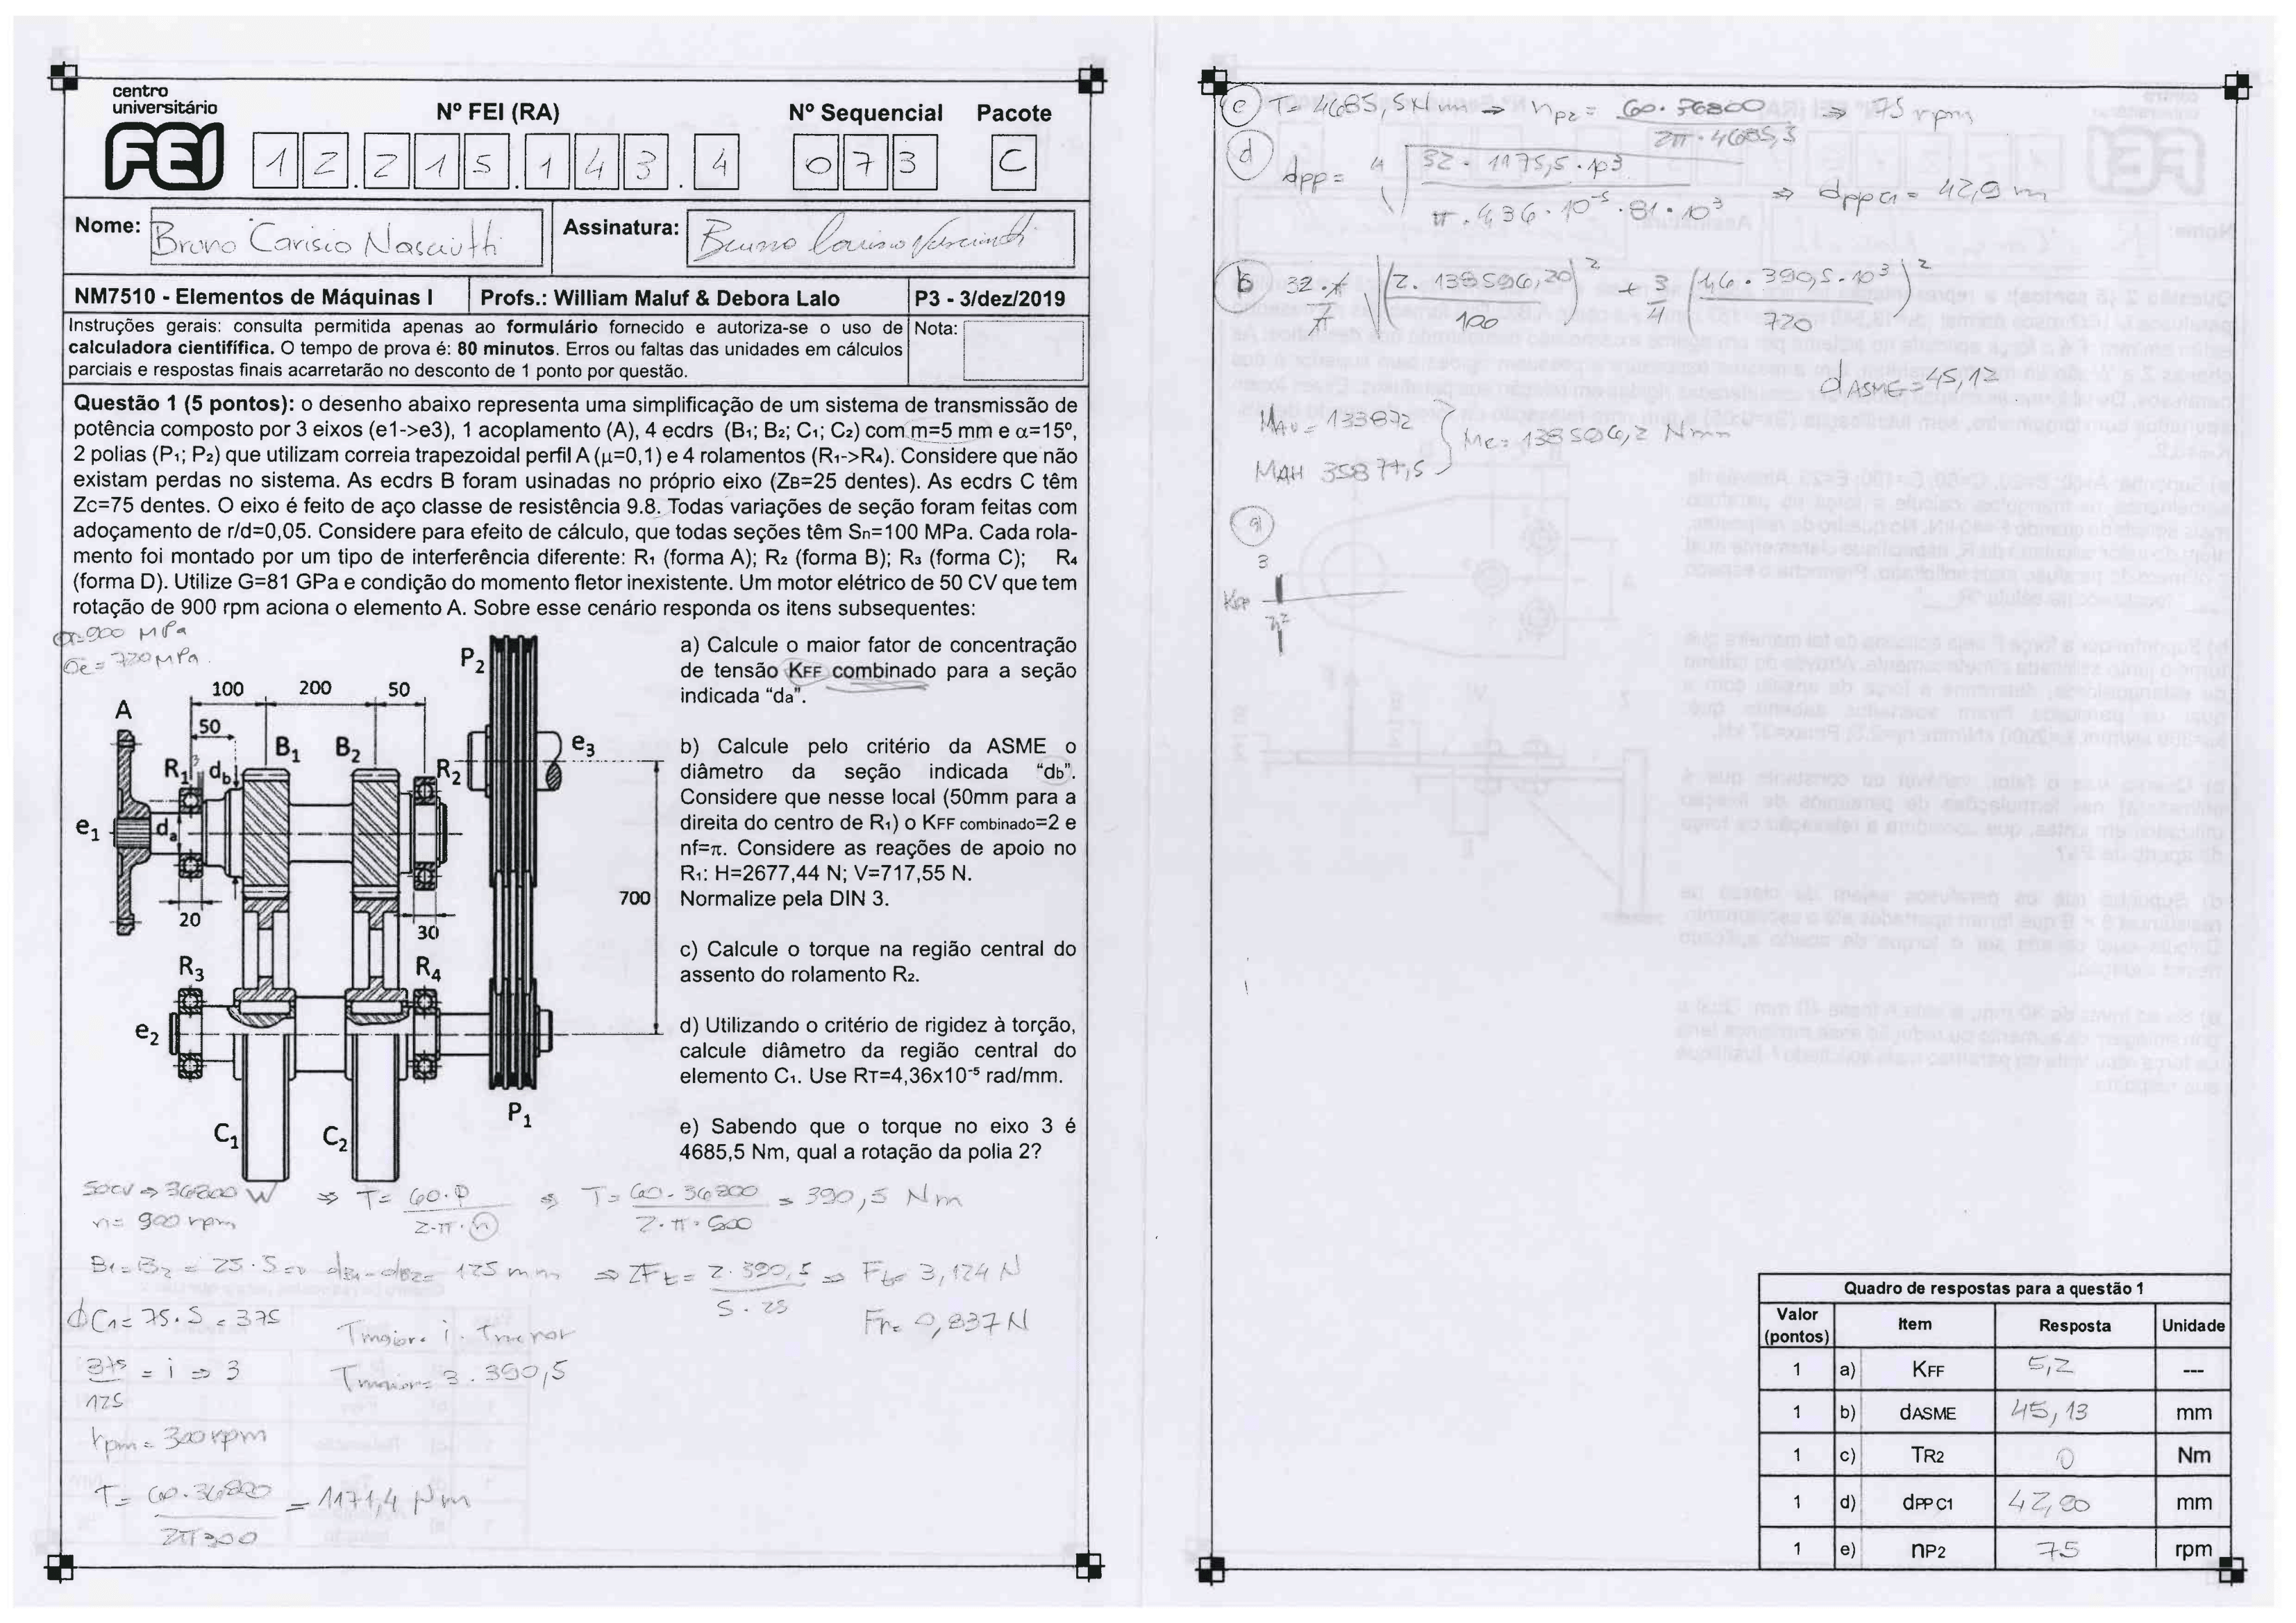 centro
universitário
FEI
Nº FEI (RA)
Nº Sequencial
Pacote
1 2 . 2 1 5 . 1 4 3 . 4
0 7 3
C
Nome: Bruno Carisio Nasciutti
Assinatura: Bruno Carisio Nasciutti
NM7510 - Elementos de Máquinas I
Profs.: William Maluf & Debora Lalo
P3 - 3/dez/2019
Instruções gerais: consulta permitida apenas ao formulário fornecido e autoriza-se o uso de
calculadora cientifífica. O tempo de prova é: 80 minutos. Erros ou faltas das unidades em cálculos
parciais e respostas finais acarretarão no desconto de 1 ponto por questão.
Nota:
Questão 1 (5 pontos): o desenho abaixo representa uma simplificação de um sistema de transmissão de
potência composto por 3 eixos (e1->e3), 1 acoplamento (A), 4 ecdrs (B1; B2; C1; C2) com m=5 mm e α=15º,
2 polias (P1; P2) que utilizam correia trapezoidal perfil A (μ=0,1) e 4 rolamentos (R1->R4). Considere que não
existam perdas no sistema. As ecdrs B foram usinadas no próprio eixo (ZB=25 dentes). As ecdrs C têm
Zc=75 dentes. O eixo é feito de aço classe de resistência 9.8. Todas variações de seção foram feitas com
adoçamento de r/d=0,05. Considere para efeito de cálculo, que todas seções têm Sn=100 MPa. Cada rola-
mento foi montado por um tipo de interferência diferente: R1 (forma A); R2 (forma B); R3 (forma C); R4
(forma D). Utilize G=81 GPa e condição do momento fletor inexistente. Um motor elétrico de 50 CV que tem
rotação de 900 rpm aciona o elemento A. Sobre esse cenário responda os itens subsequentes:
σr=900 MPa
σe = 720 MPa.
100 200 50
50
A
B1
B2
R1
db
R2
e1
da
20
30
R3
R4
e2
C1
C2
P2
e3
700
P1
a) Calcule o maior fator de concentração
de tensão KFF combinado para a seção
indicada “da”.
b) Calcule pelo critério da ASME o
diâmetro da seção indicada “db”.
Considere que nesse local (50mm para a
direita do centro de R1) o KFF combinado=2 e
nf=π. Considere as reações de apoio no
R1: H=2677,44 N; V=717,55 N.
Normalize pela DIN 3.
c) Calcule o torque na região central do
assento do rolamento R2.
d) Utilizando o critério de rigidez à torção,
calcule diâmetro da região central do
elemento C1. Use RT=4,36x10⁻⁵ rad/mm.
e) Sabendo que o torque no eixo 3 é
4685,5 Nm, qual a rotação da polia 2?
50CV ⇒ 36800 W ⇒ T = 60·P / 2·π·n ⇒ T = 60·36800 / 2·π·900 = 390,5 Nm
n = 900 rpm
B1=B2 = 25·5 = dB1=dB2= 125 mm ⇒ ZFt = 2·390,5 / 5·25 ⇒ Ft= 3,124 N
Fr= 0,837 N
ϕC1= 75·5 = 375
Tmaior= i·Tmenor
375 / 125 = i ⇒ 3
Tmaior= 3·390,5
rpm = 300rpm
T = 60·36800 / 2π300 = 1171,4 Nm
e) T= 4685,5Nm ⇒ np2 = 60·36800 / 2π·4685,3 ⇒ 75 rpm
d) dpp = 4√ 32·1175,5·10³ / π·4,36·10⁻⁵·81·10³ ⇒ dppc1 = 42,9 m
b) 32·π / π √ (2·138506,20 / 100)² + 3/4 (1,6·390,5·10³ / 720)²
dASME=45,12
MAV = 133872
MAH 35877,5
Me=138506,2 Nmm
a)
3
Quadro de respostas para a questão 1
Valor (pontos) Item Resposta Unidade
1 a) KFF 5,2 ---
1 b) dASME 45,13 mm
1 c) TR2 0 Nm
1 d) dPP C1 42,90 mm
1 e) nP2 75 rpm